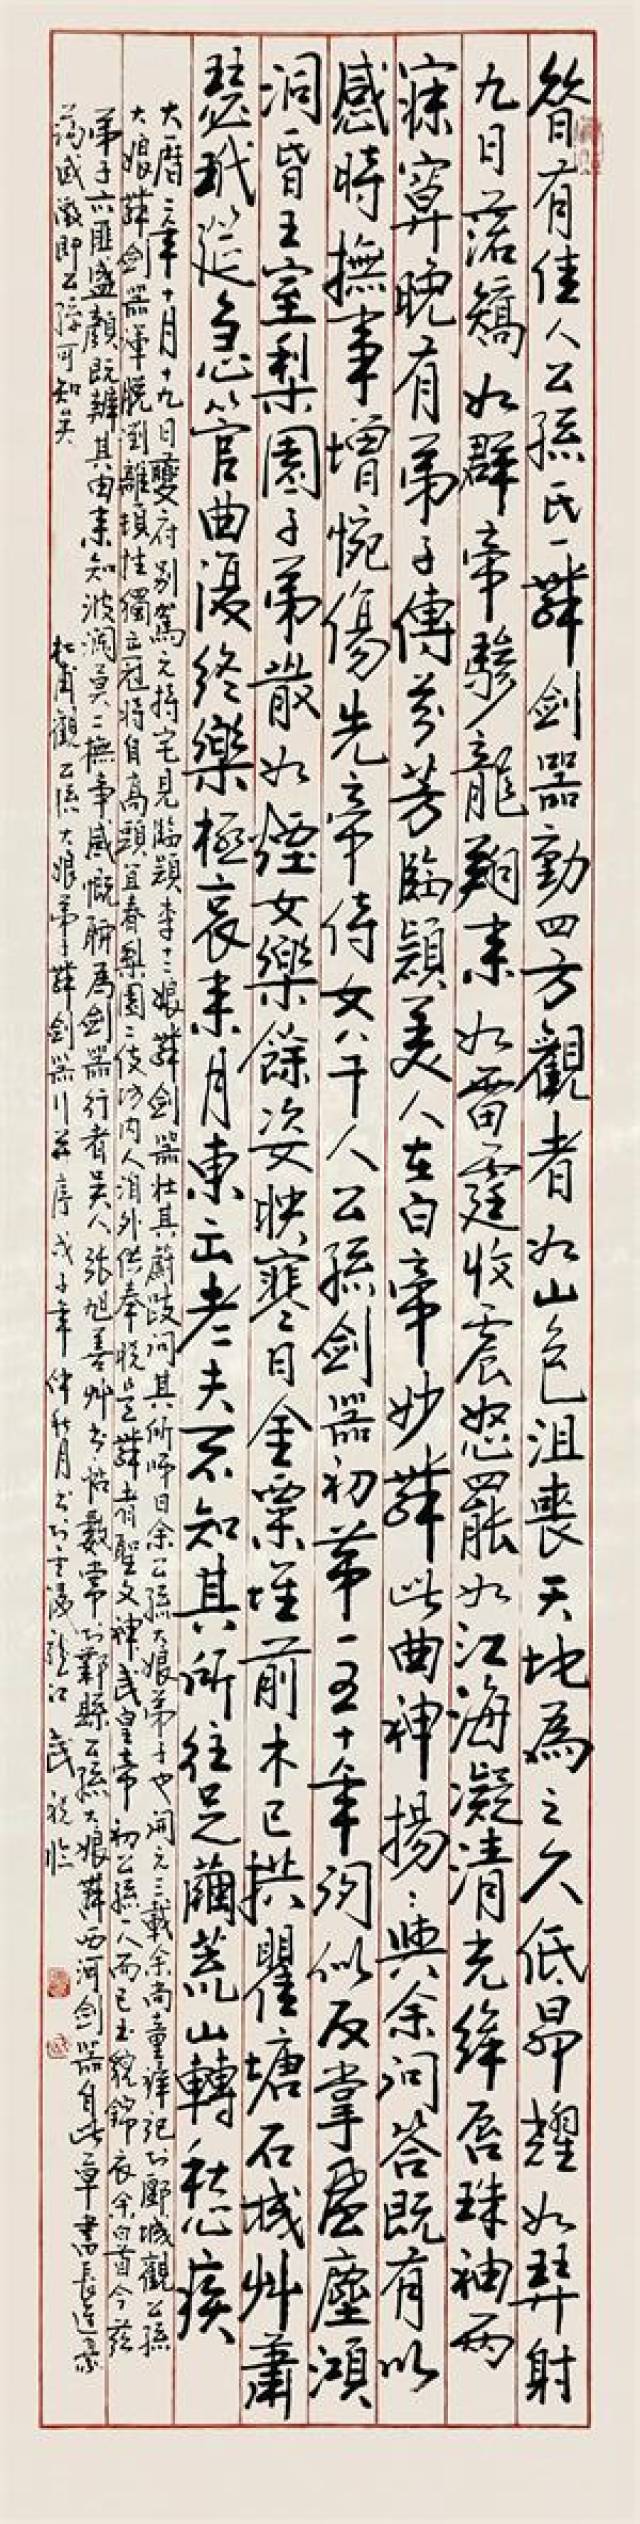 昔有佳人公孫氏一舞劍器動四方觀者如山色沮喪天地為之久低昂耀如羿射
九日落矯如群帝驂龍翔來如雷霆收震怒罷如江海凝清光絳唇珠袖兩
寂寞晚有弟子傳芬芳臨潁美人在白帝妙舞此曲神揚〻與余問答既有以
感時撫事增惋傷先帝侍女八千人公孫劍器初第一五十年間似反掌風塵澒
洞昏王室梨園子弟散如煙女樂餘姿映寒日金粟堆前木已拱瞿塘石城艸蕭
瑟玳筵急管曲復終樂極哀來月東出老夫不知其所往足繭荒山轉愁疾
大曆二年十月十九日夔府別駕元持宅見臨潁李十二娘舞劍器壯其蔚跂問其所師曰余公孫大娘弟子也開元三載余尚童稚記於郾城觀公孫
大娘舞劍器渾脫瀏灕頓挫獨出冠時自高頭宜春梨園二伎坊內人洎外供奉曉是舞者聖文神武皇帝初公孫一人而已玉貌錦衣余白首今茲
弟子亦匪盛顏既辨其由來知波瀾莫二撫事感慨聊為劍器行者吳人張旭善艸書帖數常於鄴縣公孫大娘舞西河劍器自此草書長進豪
蕩感激即公孫可知矣 杜甫觀公孫大娘弟子舞劍器行并序 戊子年仲秋月書於龍江